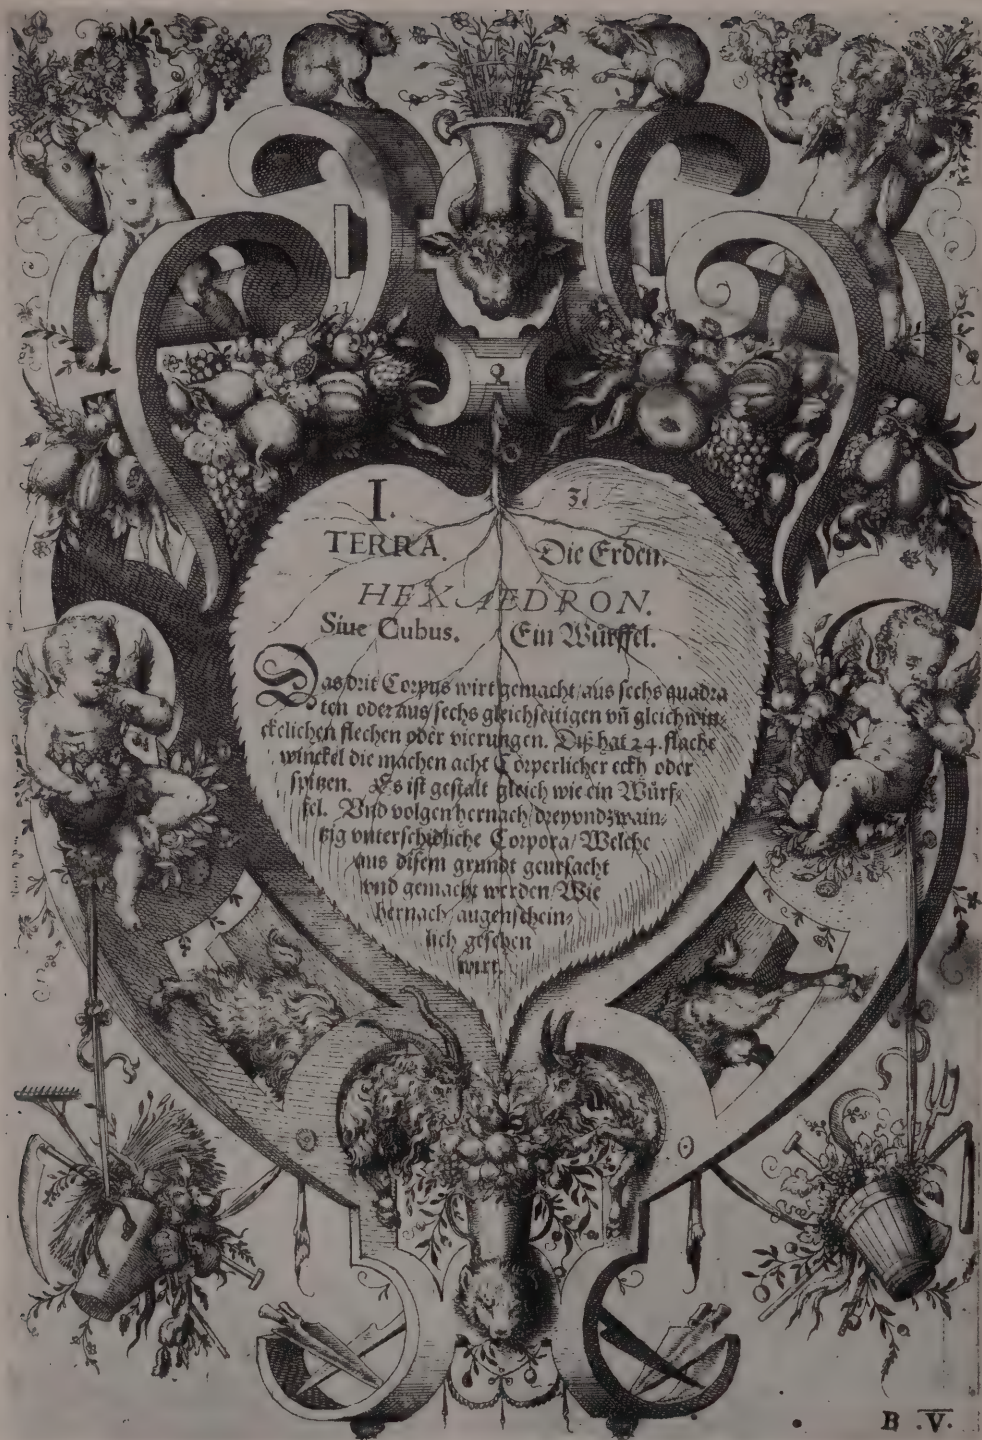 I. 3.
TERRA. Die Erden.
HEXAEDRON.
Siue Cubus. Ein Würffel.
Das drit Corpus wirt gemacht/aus sechs quadra
ten oder aus sechs gleichseitigen vñ gleichwin⸗
ckelichen flechen oder vierungen. Diß hat 24. flache
winckel die machen acht Cörperlicher eckh oder
spitzen. Es ist gestalt gleich wie ein Würf⸗
fel. Vnd volgen hernach/dreyvndzwain⸗
tzig vnterschidliche Corpora/Welche
aus disem grundt geursacht
vnd gemacht werden/Wie
hernach augenschein⸗
lich gesehen
wirt.
B .V.